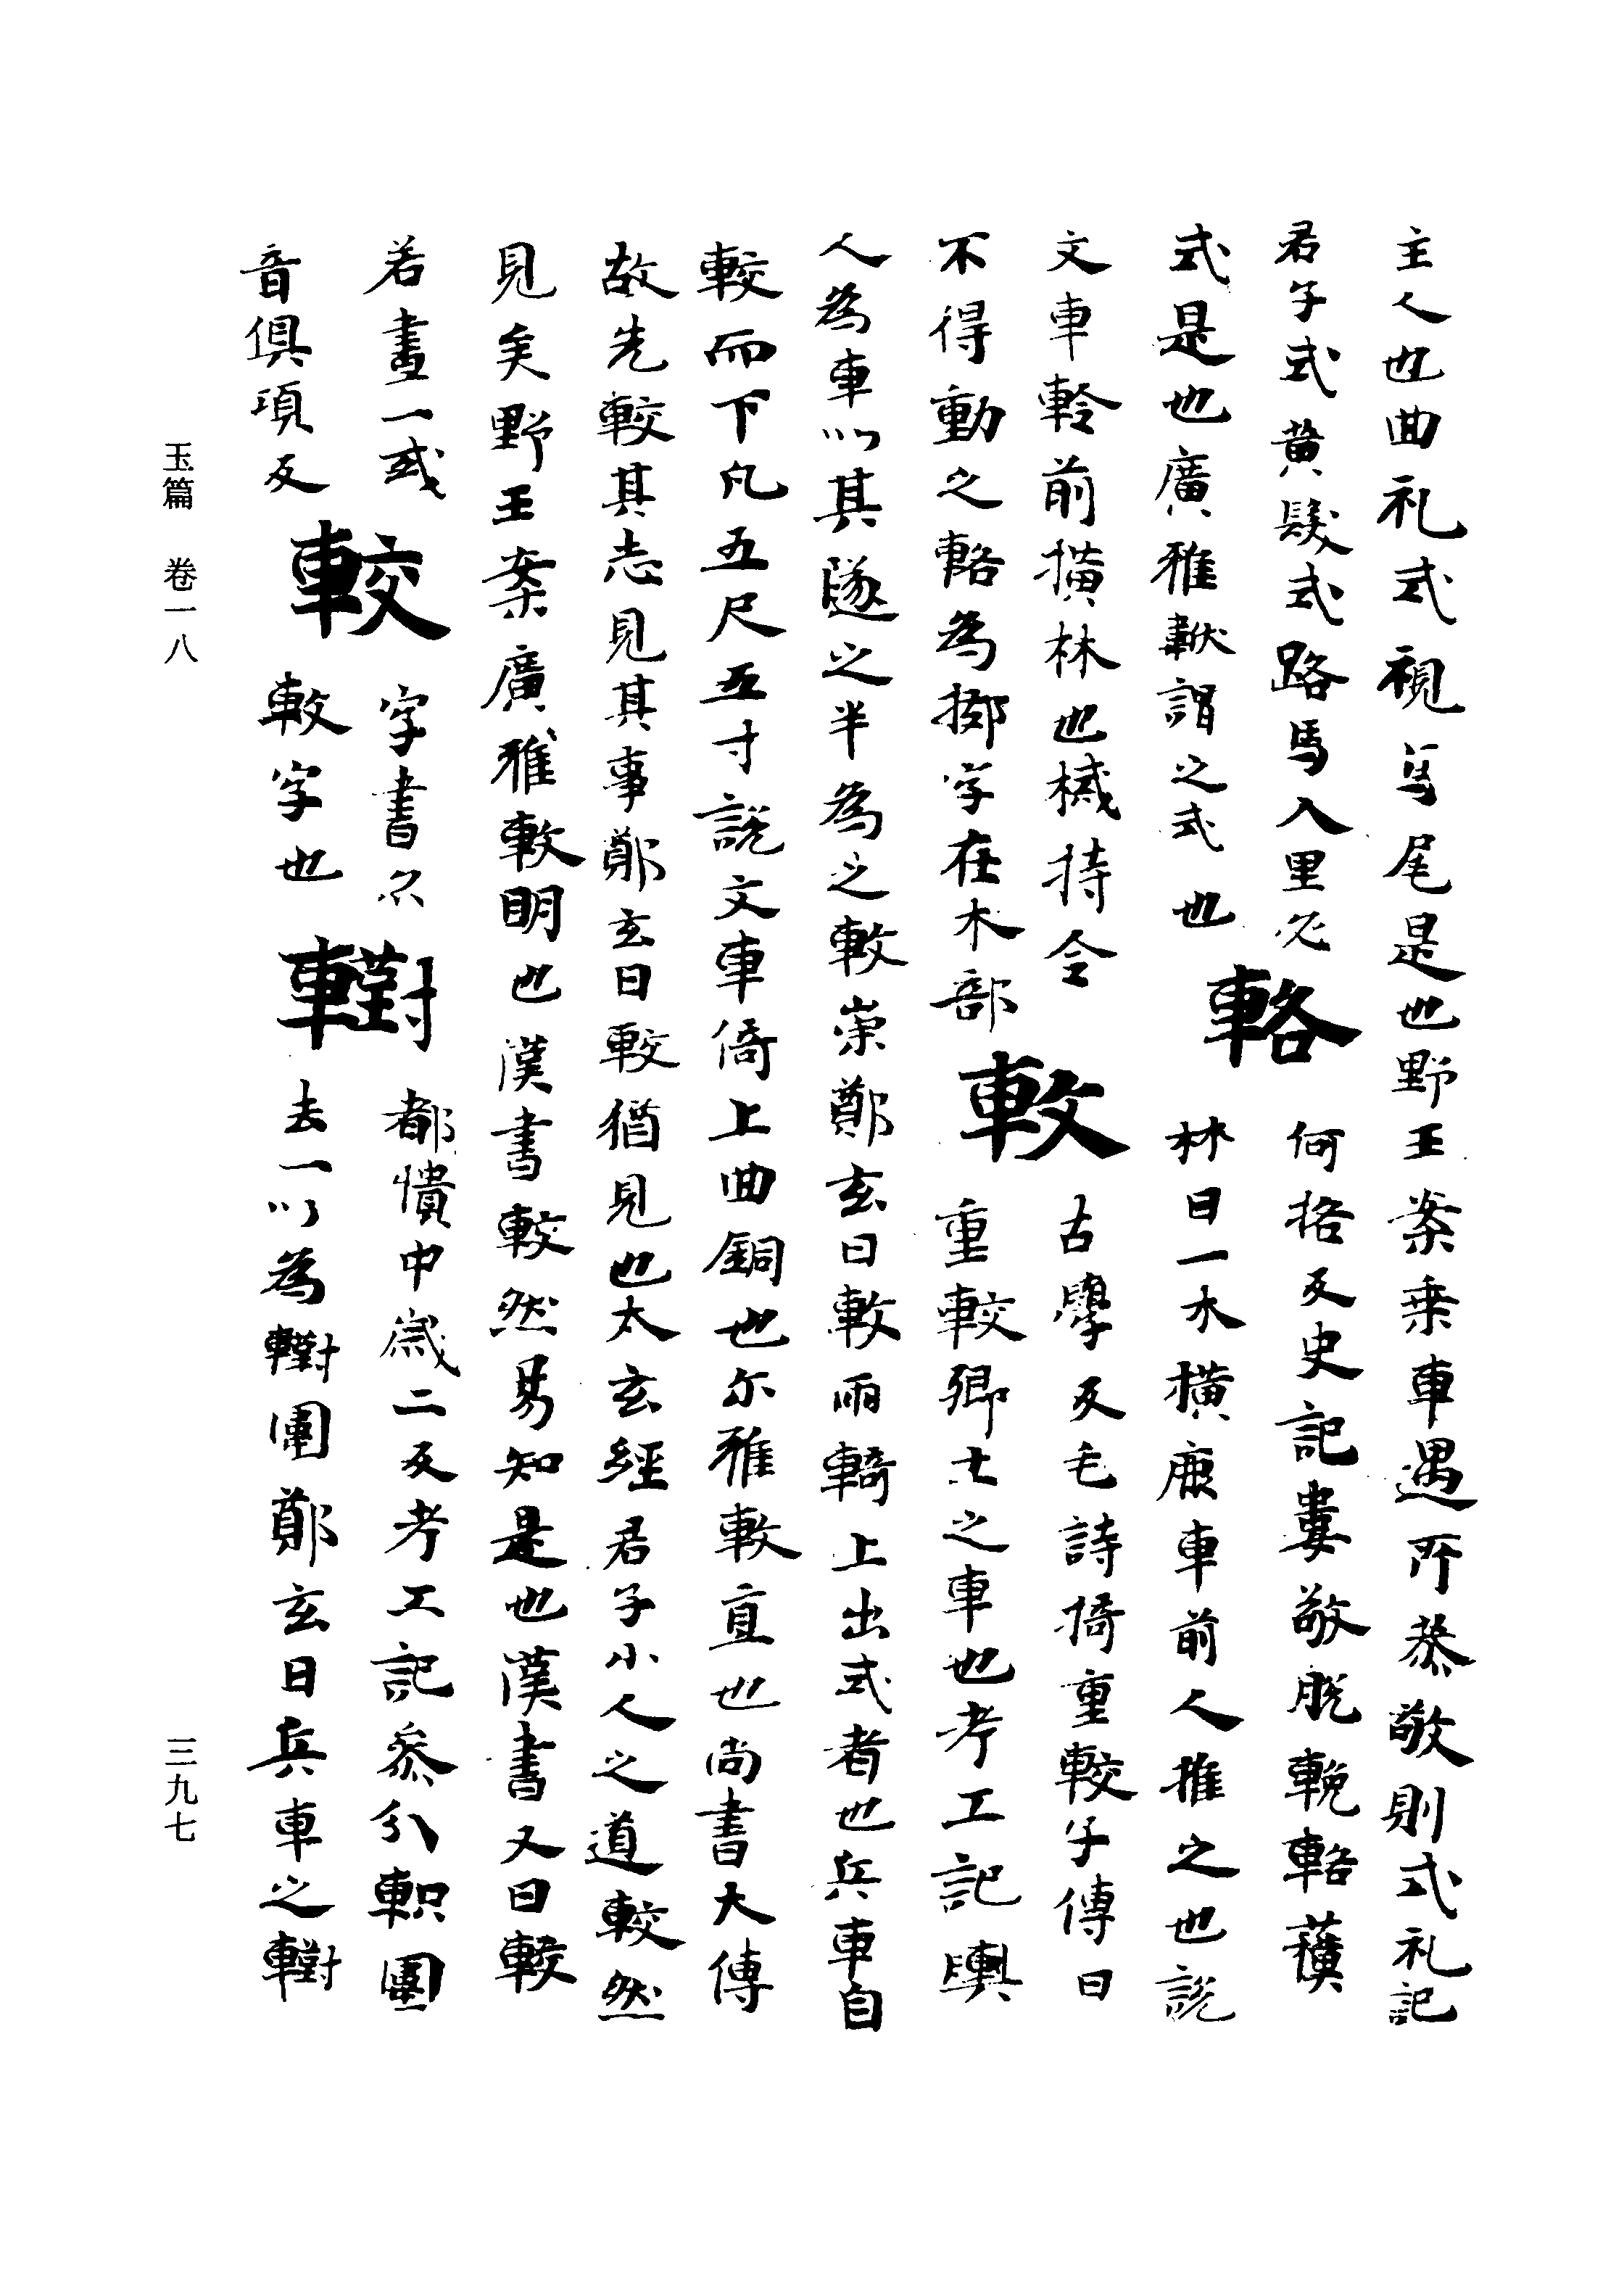 主人也曲礼式視馬尾是也野王案乗車遇所恭敬則式礼記
君子式黄髮式路馬入里必
式是也廣雅軾謂之式也
輅
何格反史記婁敬脱輓輅蘋
林曰一木横鹿車前人推之也説
文車軨前横林也㭜持令
不得動之輅為㧻字在木部
較
古學反毛詩猗重較子傳曰
重較卿士之車也考工記輿
人為車以其隧之半為之較崇鄭玄曰較兩輢上出式者也兵車自
較而下凡五尺五寸説文車倚上曲銅也尓雅較直也尚書大傳
故先較其志見其事鄭玄曰較猶見也太玄經君子小人之道較然
見矣野王案廣雅較明也漢書較然易知是也漢書又曰較
若畫一或
音俱項反
較
字書尒
較字也
轛
都憒中歲二反考工記叅分軹圍
去一以為轛圍鄭玄曰兵車之轛
玉篇 卷一八
三九七